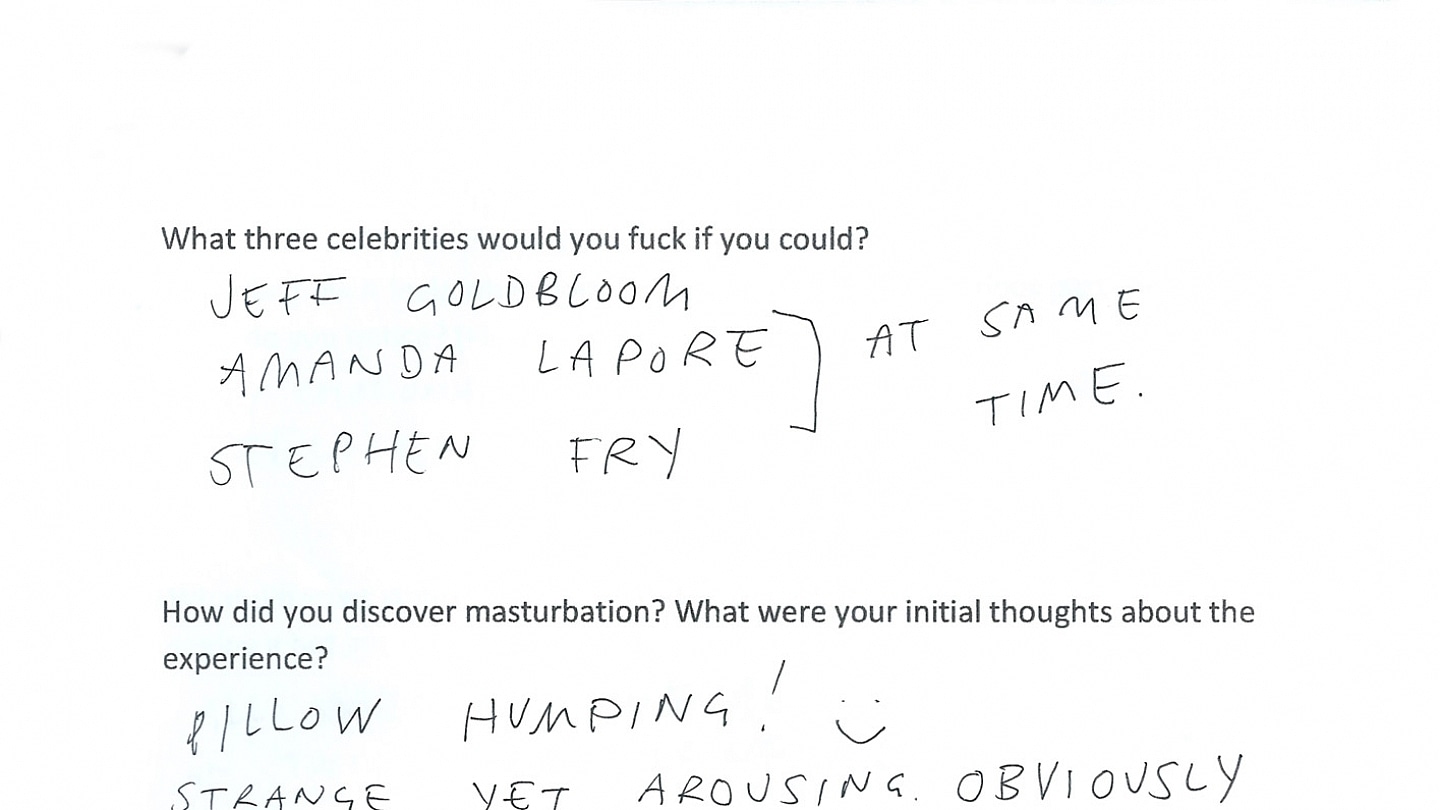 What three celebrities would you fuck if you could?
JEFF GOLDBLOOM
AMANDA LAPORE ] AT SAME TIME.
STEPHEN FRY
How did you discover masturbation? What were your initial thoughts about the
experience?
PILLOW HUMPING! :)
STRANGE YET AROUSING. OBVIOUSLY